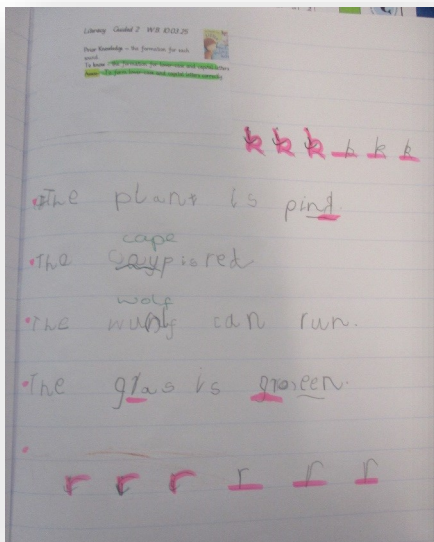 Literacy Guided 2 W.B. 10.03.25
Prior Knowledge - the formation for each sound.
To know - the formation for lower-case and capital letters
Aspire - To form lower-case and capital letters correctly
k k k k k k
The plant is pind.
cape
The is red
wolf
The can run.
The glas is groseen.
r r r r r r